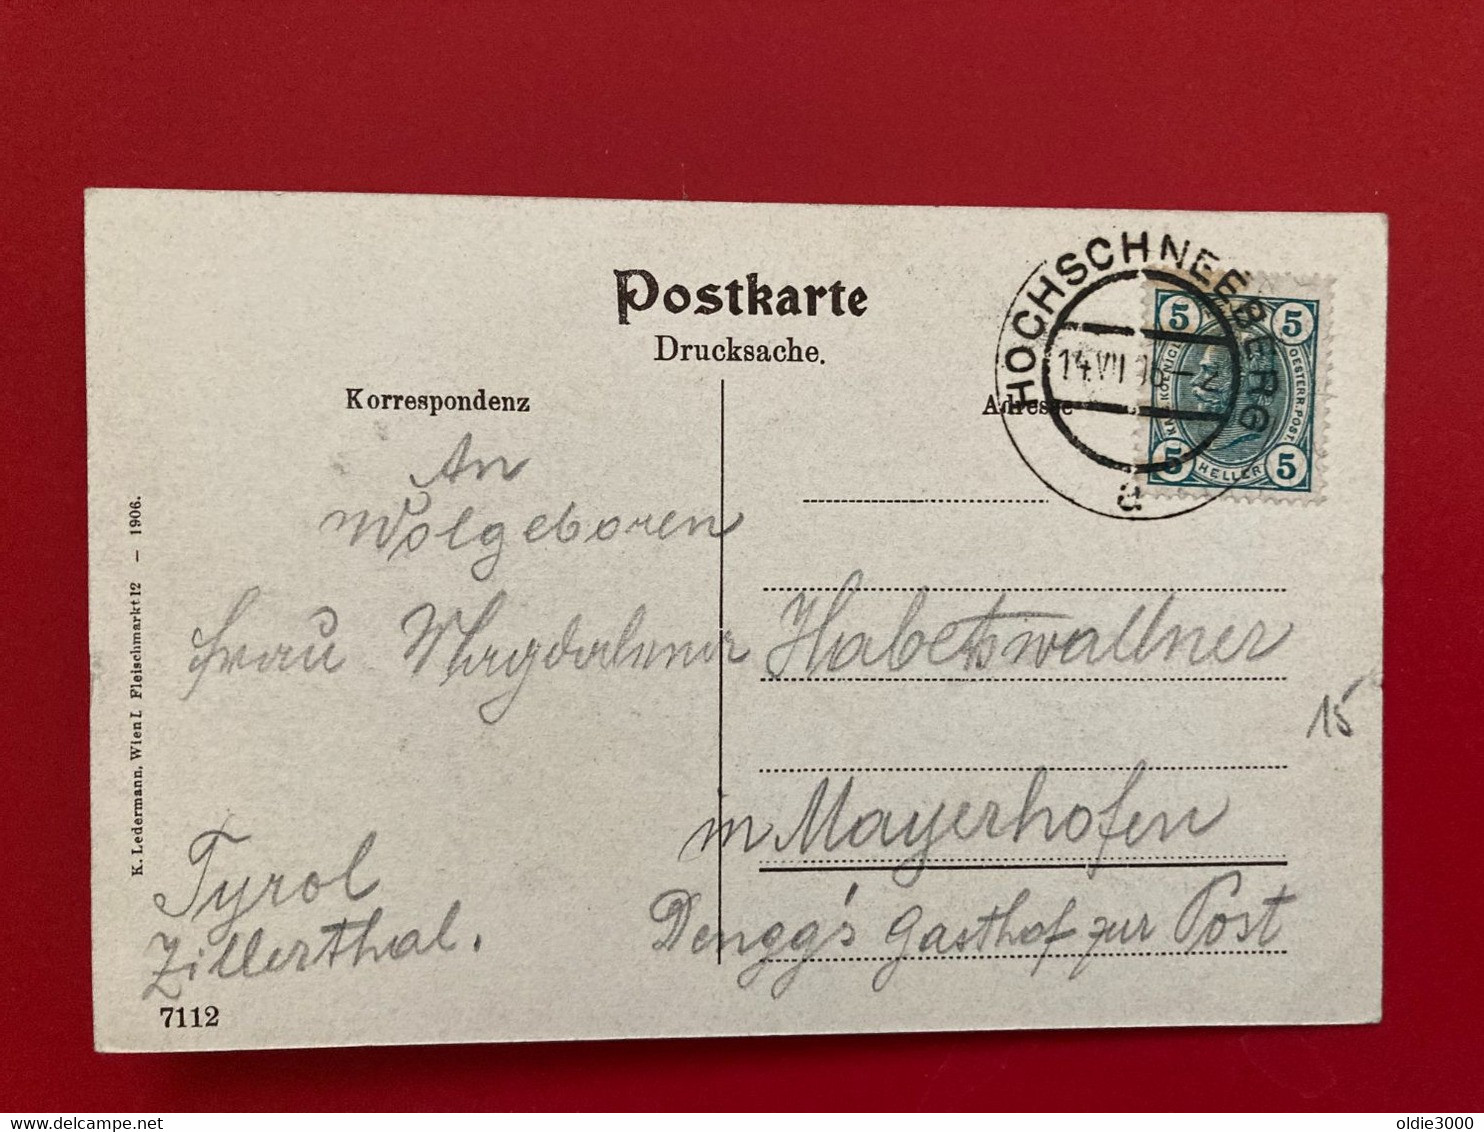 Postkarte
Drucksache.
Korrespondenz
Adresse
HOCHSCHNEEBERG
14.VII
a
5 5
KAIS. KOENIGL. OESTERR. POST.
5 HELLER 5
An
Wolgeboren
Frau Magdalena Haberswallner
15
in Mayerhofen
Tyrol
Dengg's Gasthof zur Post
Zillerthal.
7112
K. Ledermann, Wien I. Fleischmarkt 12 – 1906.
delcampe.net
oldie3000